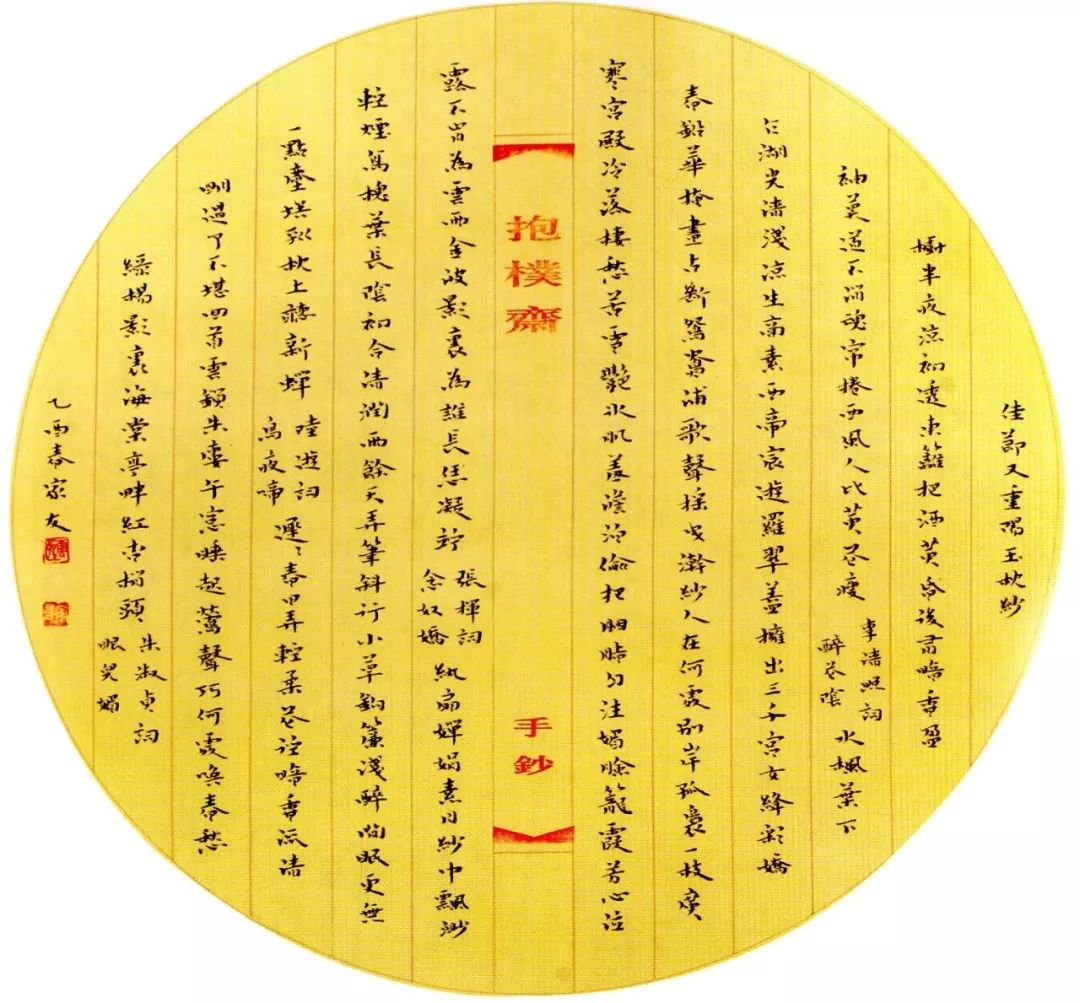 佳節又重陽玉枕紗
櫥半夜涼初透東籬把酒黃昏後有暗香盈
袖莫道不消魂帘捲西風人比黃花瘦 李清照詞 醉花陰 水楓葉下
湖光清淺涼生商素西帝宸遊羅翠蓋擁出三千宮女絳彩嬌
春鉛華掩晝占斷鴛鴦浦歌聲搖曳浣紗人在何處別岸孤裊一枝廣
寒宮殿冷落棲愁苦雪艷冰肌羞澹泊偷把胭脂勻注媚臉籠霞芳心泣
抱樸齋
手鈔
露不肯為雲雨金波影裏為誰長恁凝竚 張揮詞 念奴嬌 紈扇嬋娟素月紗巾飄渺
輕煙高槐葉長陰初合清潤雨餘天弄筆斜行小草鈎簾淺醉閒眠更無
一點塵埃到枕上聽新蟬 陸遊詞 烏夜啼 遲遲春日弄輕柔花徑暗香流清
明過了不堪回首雲鎖朱樓午窗睡起鶯聲巧何處喚春愁
綠楊影裏海棠亭畔紅杏梢頭 朱淑貞詞 眼兒媚
乙酉春家友